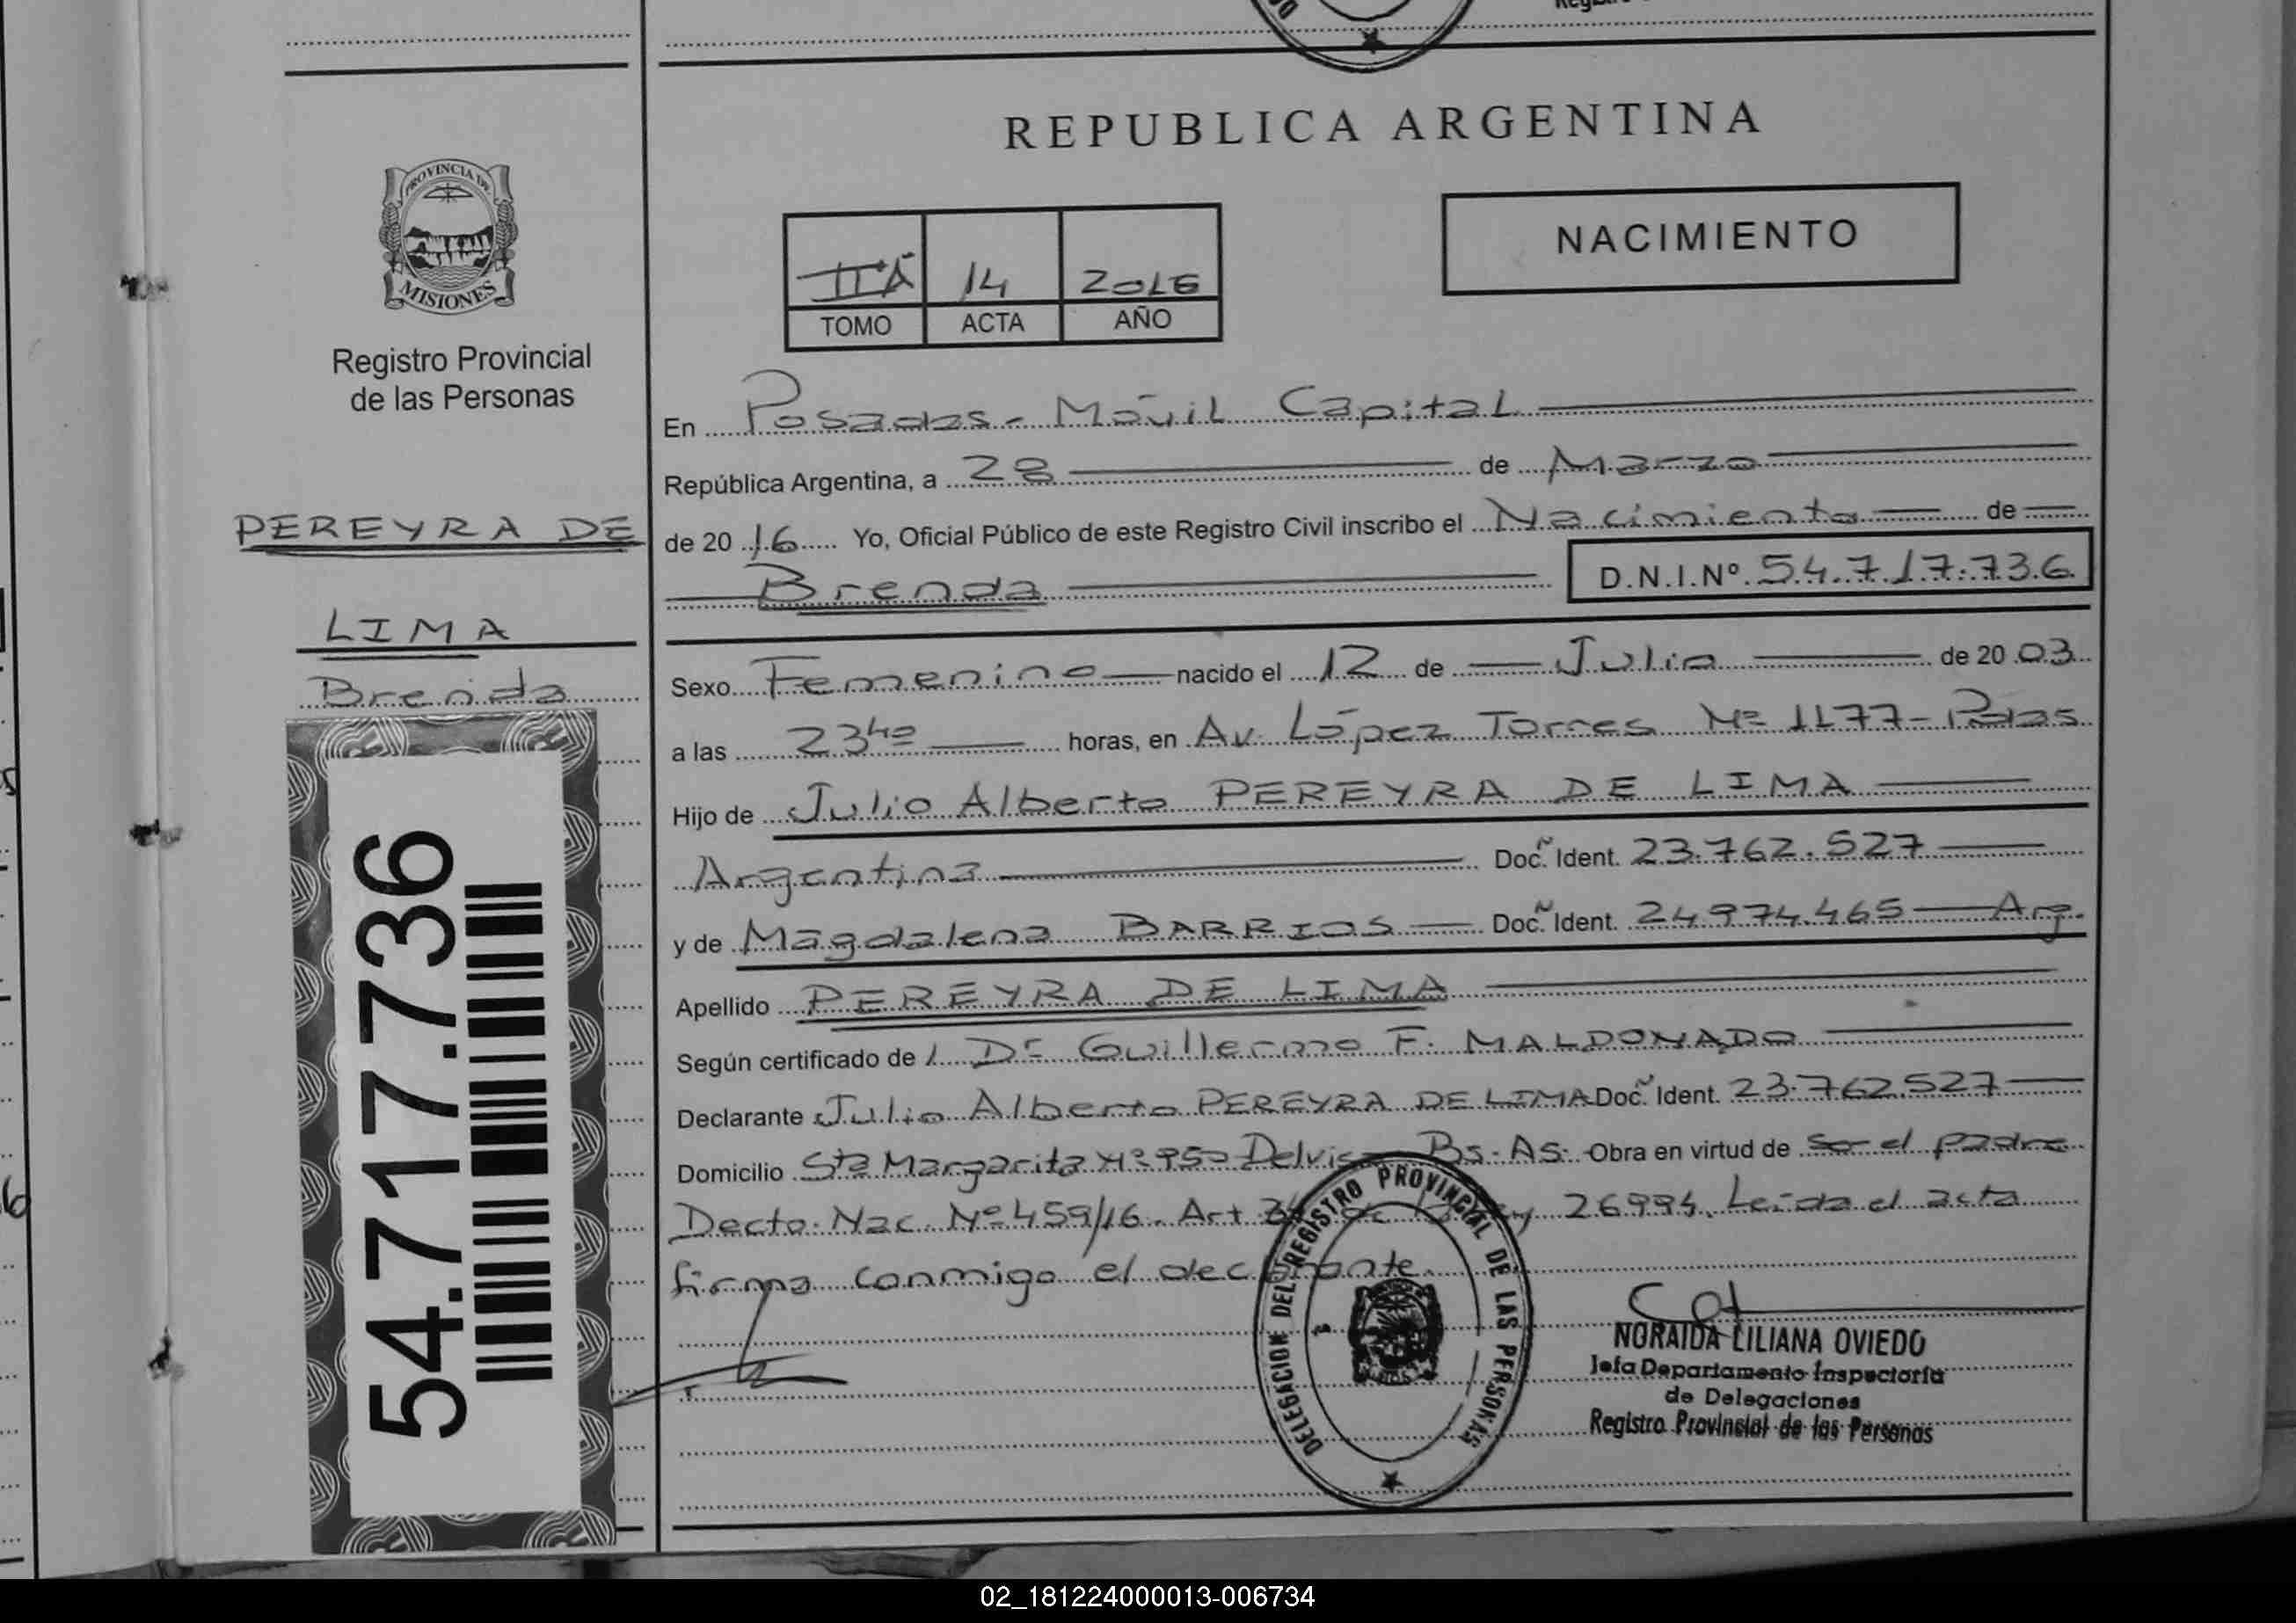 REPUBLICA ARGENTINA
PROVINCIA DE
MISIONES
Registro Provincial
de las Personas
NACIMIENTO
14 2016
TOMO ACTA AÑO
En Posadas - Móvil Capital
República Argentina, a 28 de Marzo
de 2016 Yo, Oficial Público de este Registro Civil inscribo el Nacimiento de
Brenda D.N.I.Nº. 54.717.736
PEREYRA DE
LIMA
Brenda
54.717.736
Sexo Femenino nacido el 12 de Julio de 2003
a las 23⁴⁰ horas, en Av. López Torres Nº 1177 - Pdas
Hijo de Julio Alberto PEREYRA DE LIMA
Argentina Doc. Ident. 23.762.527
y de Magdalena BARRIOS Doc. Ident. 24.974.465 Arg.
Apellido PEREYRA DE LIMA
Según certificado de Dr Guillermo F. MALDONADO
Declarante Julio Alberto PEREYRA DE LIMA Doc. Ident. 23.762.527
Domicilio Sta Margarita Nº 950 Bs. As. Obra en virtud de ser el padre
Decto. Nac. Nº 459/16. Art 26994. Leída el acta
firma conmigo el declarante.
DELEGACION DEL REGISTRO PROVINCIAL DE LAS PERSONAS
NORAIDA LILIANA OVIEDO
Jefa Departamento Inspectoría
de Delegaciones
Registro Provincial de las Personas
02_181224000013-006734